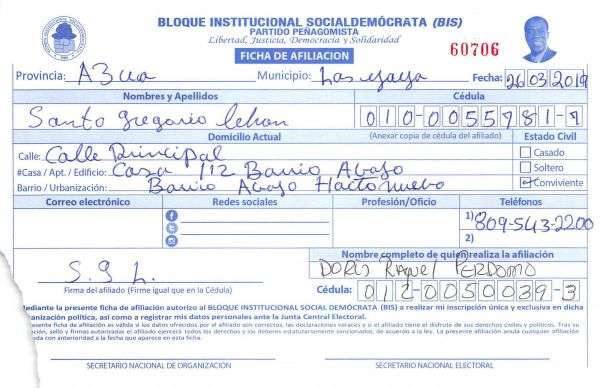 BLOQUE INSTITUCIONAL SOCIALDEMÓCRATA (BIS)
PARTIDO PEÑAGOMISTA
Libertad, Justicia, Democracia y Solidaridad
FICHA DE AFILIACION
60706
Provincia: Azua Municipio: Las yaya Fecha: 26 03 2019
Nombres y Apellidos Cédula
Santo gregorio 010-0055781-9
Domicilio Actual (Anexar copia de cédula del afiliado) Estado Civil
Calle: Calle Principal Casado
#Casa / Apt. / Edificio: Casa 112 Barrio Abajo Soltero
Barrio / Urbanización: Barrio Abajo Hato nuevo Conviviente
Correo electrónico Redes sociales Profesión/Oficio Teléfonos
1) 809-543-2200
2)
Nombre completo de quien realiza la afiliación
S. G L. DORIS RAQUEL PERDOMO
Firma del afiliado (Firme igual que en la Cédula) Cédula: 012-0050039-3
Mediante la presente ficha de afiliación autorizo al BLOQUE INSTITUCIONAL SOCIAL DEMÓCRATA (BIS) a realizar mi inscripción única y exclusiva en dicha
organización política, así como a registrar mis datos personales ante la Junta Central Electoral.
presente ficha de afiliación se valida si los datos ofrecidos por el afiliado son correctos, las declaraciones veraces y si el titular tiene el disfrute de sus derechos civiles y políticos. Tras su
sello y firmas autorizadas el afiliado ejercerá todos los derechos y los deberes estatutariamente sancionados, de acuerdo a la ley. La presente afiliación anula cualquier afiliación
con anterioridad a la fecha que aparece en esta ficha.
SECRETARIO NACIONAL DE ORGANIZACIÓN SECRETARIO NACIONAL ELECTORAL